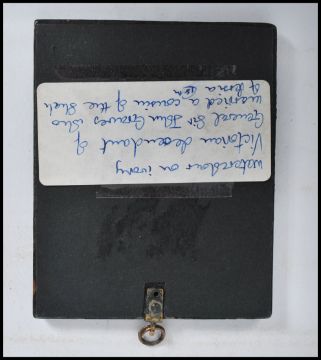 watercolour on ivory
Victorian decendant of
General Sir John Graves who
married a cousin of the Shah
of